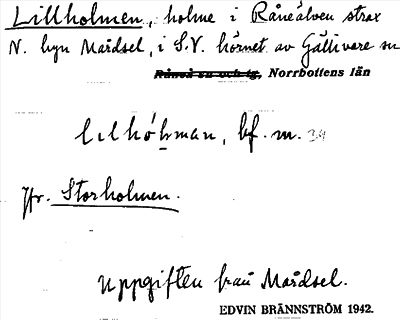 Lillholmen, holme i Råneälven strax
N. byn Mårdsel, i S.V. hörnet av Gällivare sn
Råneå sn och tg, Norrbottens län
lılhóḥman, bf. m. 34
Jfr. Storholmen.
Uppgiften från Mårdsel.
EDVIN BRÄNNSTRÖM 1942.